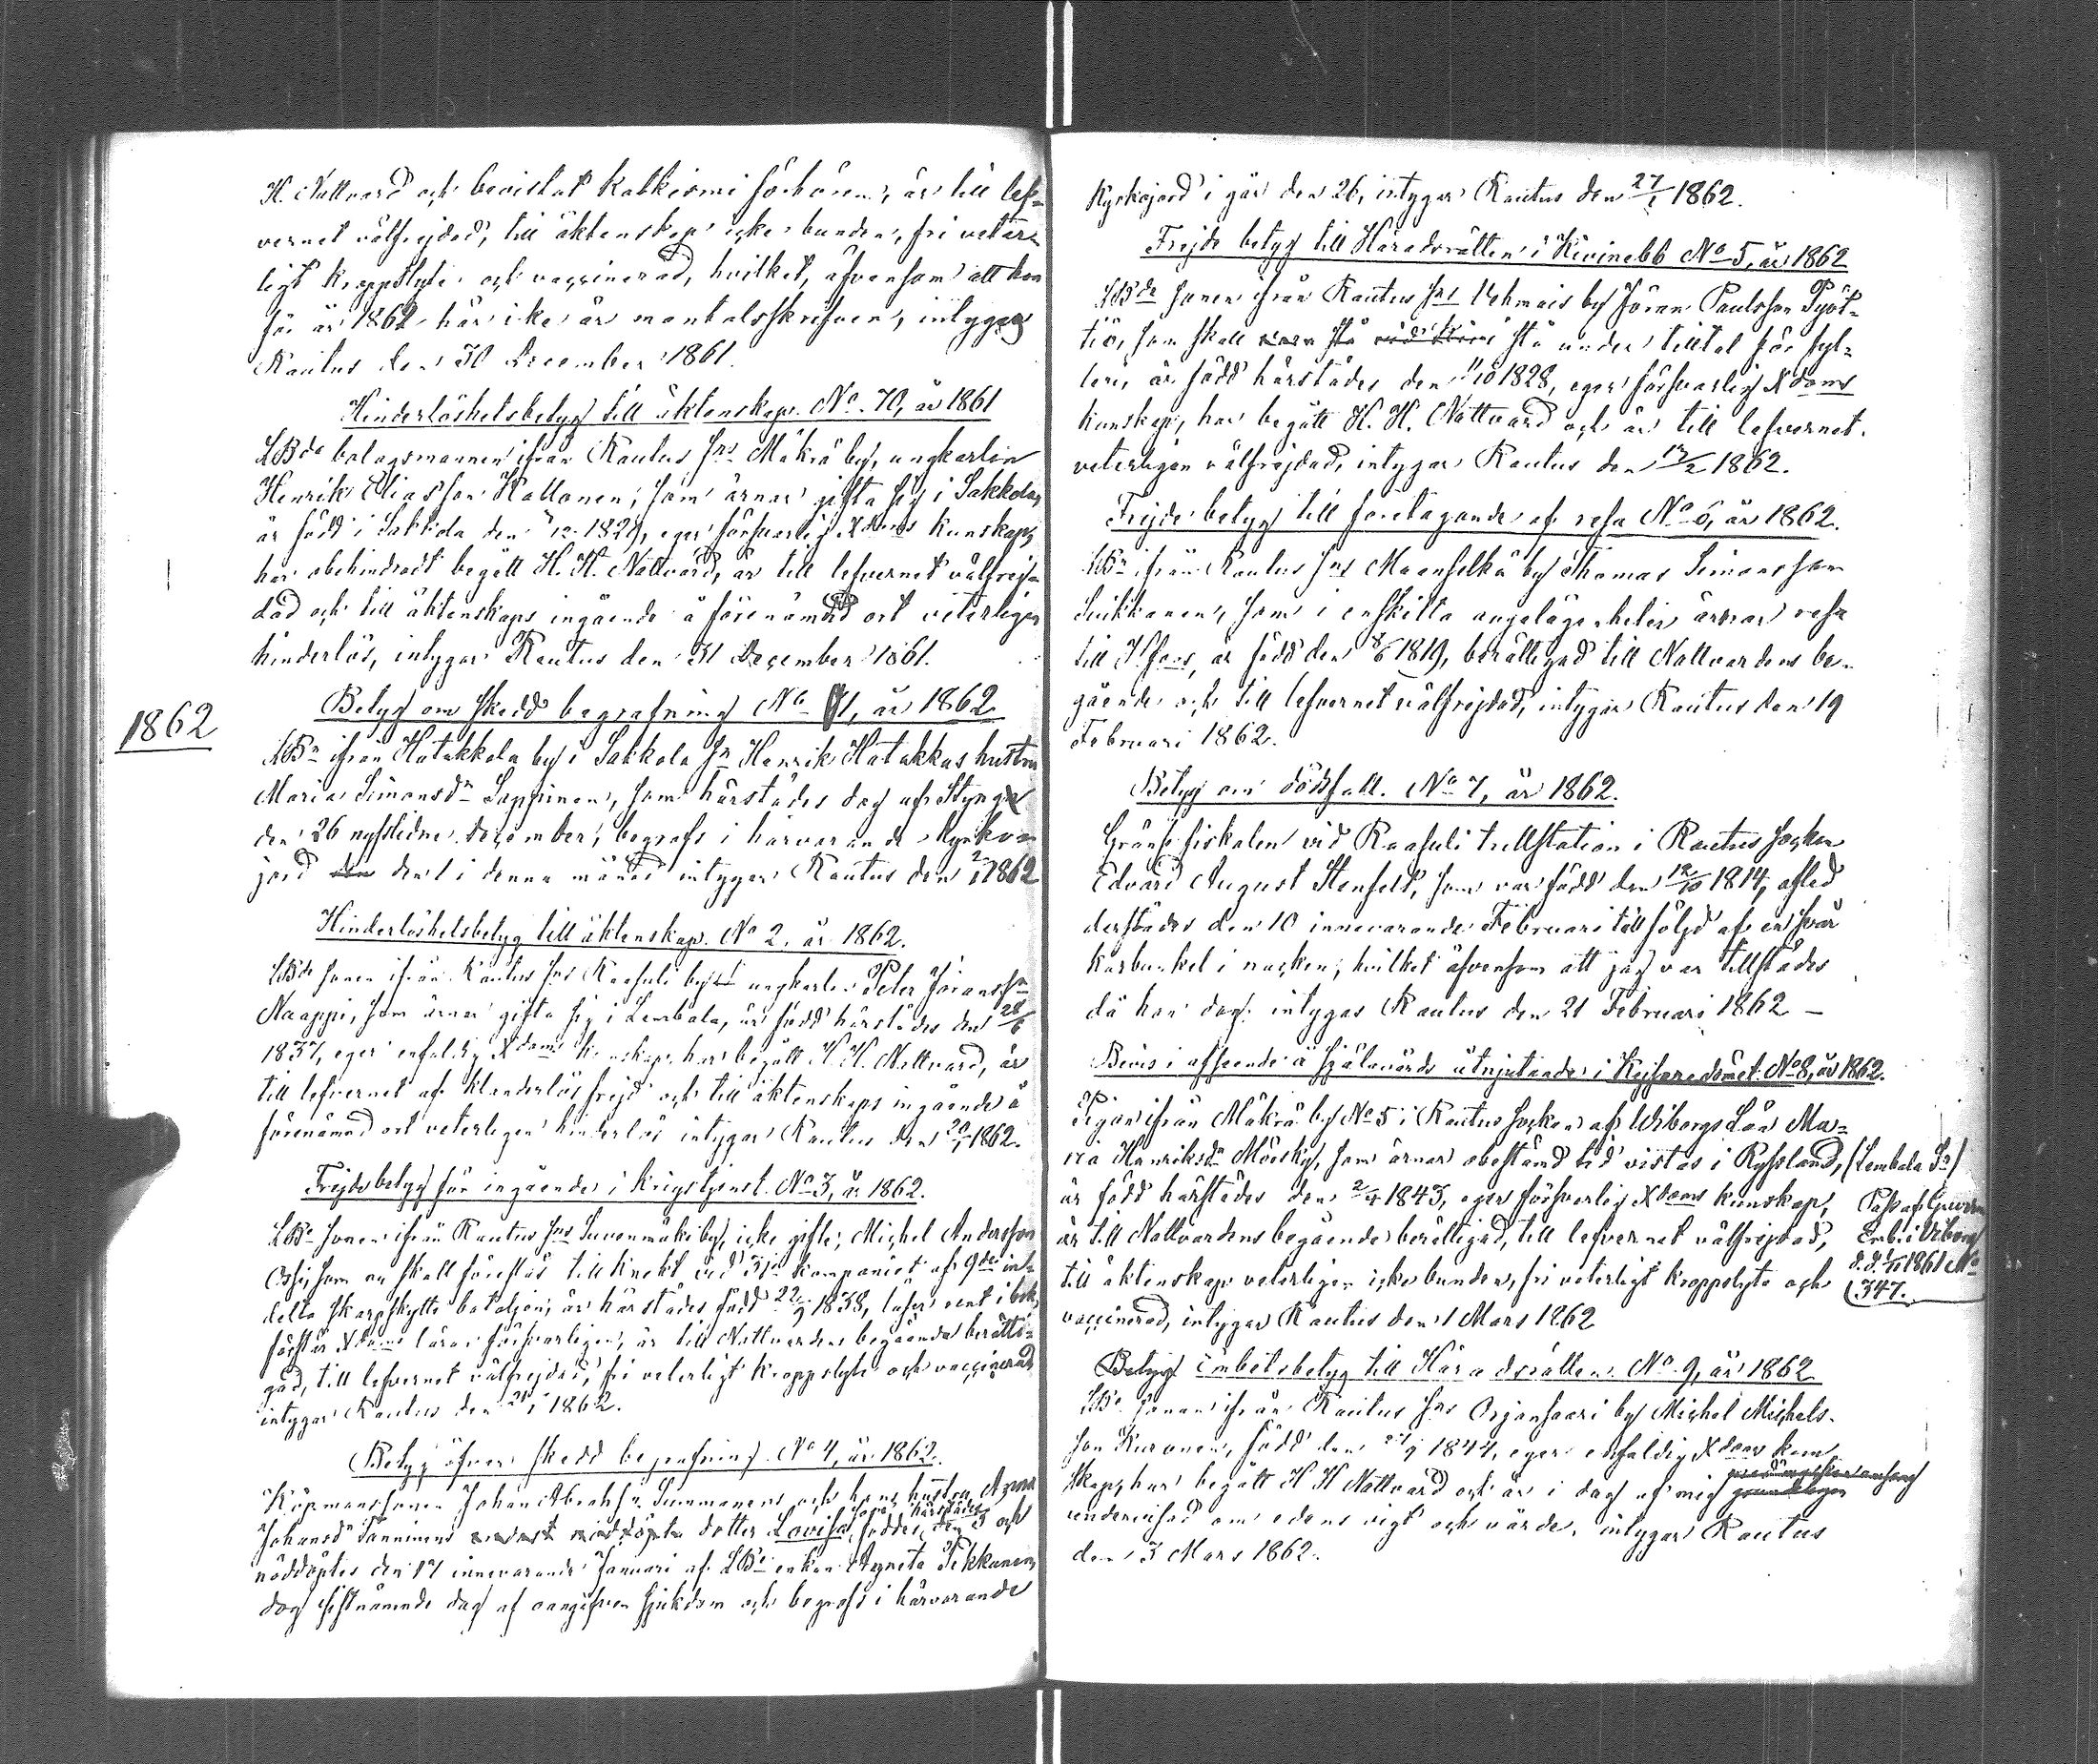 H. Nattvard och bevistat Katkismi förhören, är till lef-
vernet välfrejdad, till äktenskap icke bunden, fri veter-
ligt kroppslyte och vaccinerad, hvilket, äfvensom att hon
för år 1862 här icke är mantalsskrifven, intygas
Rautus den 30 December 1861.
Hinderlöshetsbetyg till äktenskap. No. 70, år 1861
LBde bolagsmannen ifrån Rautus Sns Mäkrä by, ungkarlen
Henrik Eliasson Hallonen, som ärnar gifta sig i Sakkola,
är född i Sakkola den 1829, eger försvarlig Xdoms kunskap,
har obehindradt begått H. H. Nattvard, är till lefvernet välfrej-
dad och till äktenskaps ingående å förenämnd ort veterligen
hinderlös, intygar Rautus den 31 December 1861.
1862
Betyg om skedd begrafning No 1, år 1862
LBn ifrån Hatakkala by i Sakkola Sn Henrik Hatakkas hustru
Maria Simonsdr Lappinen, som härstädes dog af Styng
den 26 nysslidne december, begrofs i härvarande kyrko-
jord den den 1 i denna månad intygar Rautus den 2/1 1862
Hinderlöshetsbetyg till äktenskap. No 2. år 1862.
LBde sonen ifrån Rautus Sns Raasuli by ungkarlen Peter Joransson
Naappi, som ärnar gifta sig i Lembala, är född härstädes den 28/6
1837, eger enfaldig Xdoms kunskap, har begått H. H. Nattvard, är
till lefvernet af klanderlös frejd och till äktenskaps ingående å
förenämnd ort veterligen hinderlös intygar Rautus den 20/1 1862.
Frejdebetyg för ingående i krigstjenst. No 3, år 1862.
LBe sonen ifrån Rautus Sns Suvenmäki by, icke gifte, Michel Andersson
som nu skall föreslås till knekt vid 3je kompaniet af 9de in-
delta skarpskytte bataljon, är härstädes född 22/9 1838, läser rent i bok,
förstår Xdoms läran försvarligen, är till Nattvardens begående berätti-
gad, till lefvernet välfrejdad, fri veterligt kroppslyte och vaccinerad
intygar Rautus den 21/1 1862.
Betyg öfver skedd begrafning No 4, år 1862.
Köpmanssonen Johan Abrahsn Summanens och hans hustru Anna
Johansdr Tanninens dotter Lovisa, som härstädes föddes den 3 och
nöddöptes den 17 innevarande Januari af LBe enkan Agneta Pekkanen,
dog sistnämnde dag af oangifven sjukdom och begrofs i härvarande
kyrkojord i går den 26, intygar Rautus den 27/1 1862.
Frejde betyg till Häradsrätten i Kivinebb No 5, år 1862
LBde sonen ifrån Rautus Sns Wehmais by Jöran Paulsson Pyöt-
tiö, som skall stå under tilltal för fyl-
leri, är född härstädes den 11/10 1828, eger försvarlig Xdoms
kunskap, har begått H. H. Nattvard och är till lefvernet.
veterligen välfrejdad, intygar Rautus den 17/2 1862.
Frejde betyg till företagande af resa No 6, år 1862.
LBn ifrån Rautus Sns Maanselkä by Thomas Simonsson
Luikkanen, som i enskilta angelägenheter ärnar resa
till är född den 8/6 1819, berättigad till Nattvardens be-
gående och till lefvernet välfrejdad, intygar Rautus den 19
Februari 1862.
Betyg om dödsfall. No 7, år 1862.
Gräns fiskalen vid Raasuli tullstation i Rautus Socken
Edvard August Stenfelt, som var född den 12/10 1814, afled
derstädes den 10 innevarande Februari till följd af en svår
karbunkel i nacken, hvilket äfvensom att jag var tillstädes
då han dog. intygas Rautus den 21 Februari 1862 –
Bevis i afseende å Själavårds åtnjutande i Kejsaredömet. No 8, år 1862.
Pigan ifrån Mäkrä by No 5 i Rautus Socken af Wiborgs Län Ma-
ria Henriksdr Mörsky, som ärnar obestämd tid vistas i Ryssland, (Lembala Sn)
är född härstädes den 2/4 1843, eger försvarlig Xdoms kunskap,
är till Nattvardens begående berättigad, till lefvernet välfrejdad,
till äktenskap veterligen icke bunden, fri veterligt kroppslyte och
vaccinerad, intygar Rautus den 1 Mars 1862
Pass af Guvern
Emb. i Viborg
d. d. 1861 No
347.
Betyg Embetsbetyg till Häradsrätten. No 9, år 1862
LBe sonen ifrån Rautus Sns Orjansaari by Michel Michels-
son Kuronen, född den 1844, eger enfaldig Xdoms kun-
skap, har begått H H Nattvard och är i dag af mig
undervisad om edens vigt och värde, intygar Rautus
den 3 Mars 1862.